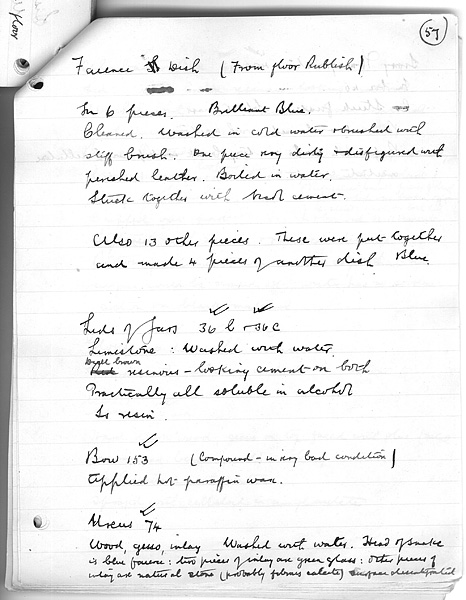 57
Faience Dish (From floor Rubbish)
In 6 pieces. Brilliant Blue.
Cleaned. Washed in cold water & brushed with
stiff brush. One piece very dirty & disfigured with
perished leather. Boiled in water.
Stuck together with cement.
Also 13 other pieces. These were put together
and made 4 pieces of another dish Blue.
Lids of Jars 36 b & 36 c
Limestone : Washed with water
brown resinous-looking cement on both
Practically all soluble in alcohol
Is resin.
Bow 153 (Compound - in very bad condition)
Applied hot paraffin wax.
Uraeus 74
Wood, gesso, inlay Washed with water. Head of snake
is blue faience : two pieces of inlay are green glass : other pieces of
inlay are natural stone (probably calcite) surface